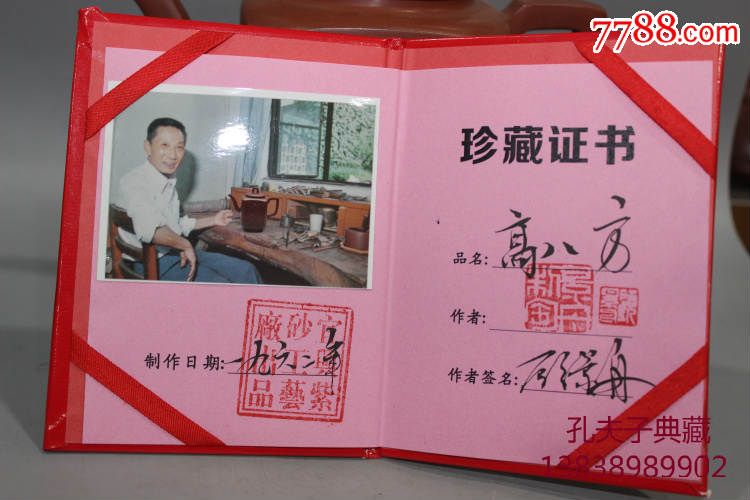 7788.com
珍藏证书
品名: 高八方
作者:
作者签名:
制作日期: 一九六二年
宜興紫
砂工藝
廠出品
孔夫子典藏
13838989902